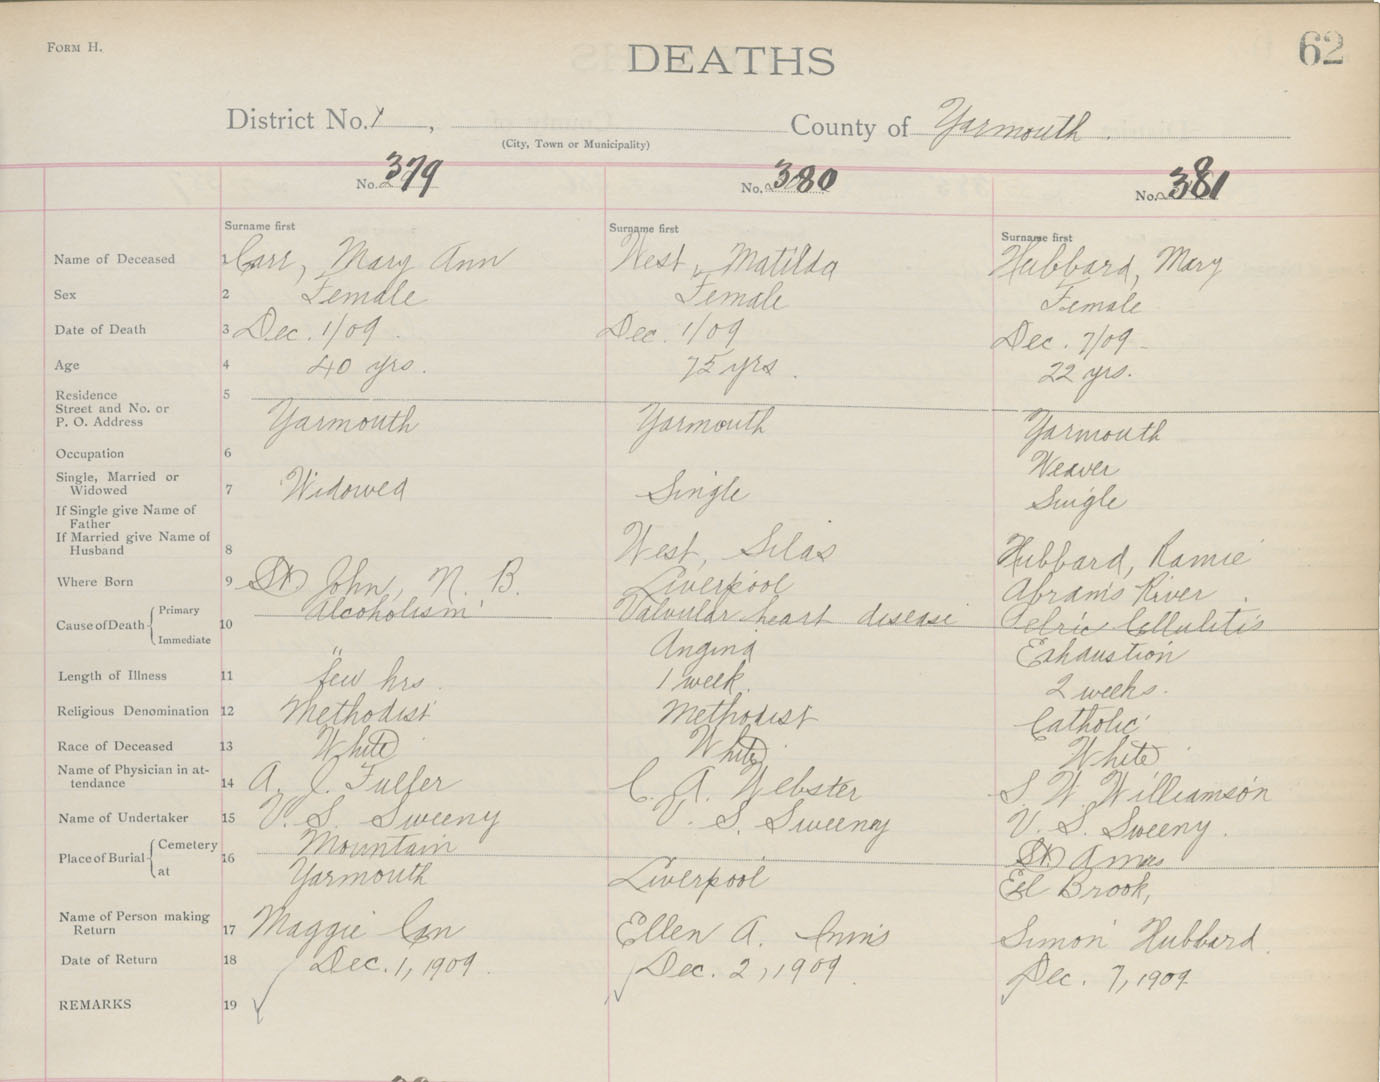 FORM H.
DEATHS
62
District No. 1, County of Yarmouth.
(City, Town or Municipality)
No. 379 No. 380 No. 381
Surname first Surname first Surname first
Name of Deceased 1 Carr, Mary Ann West, Matilda Hubbard, Mary
Sex 2 Female Female Female
Date of Death 3 Dec. 1/09 Dec. 1/09 Dec. 7/09
Age 4 40 yrs. 75 yrs. 22 yrs.
Residence 5
Street and No. or
P. O. Address Yarmouth Yarmouth Yarmouth
Occupation 6 Weaver
Single, Married or
Widowed 7 Widowed Single Single
If Single give Name of
Father
If Married give Name of
Husband 8 West, Silas Hubbard, Ramie
Where Born 9 St John, N. B. Liverpool Abram's River.
Cause of Death 10
Primary Alcoholism Valvular heart disease Pelvic Cellulitis
Immediate " Angina Exhaustion
Length of Illness 11 few hrs. 1 week. 2 weeks.
Religious Denomination 12 Methodist Methodist Catholic
Race of Deceased 13 White White White
Name of Physician in at-
tendance 14 A. J. Fuller C. A. Webster S. W. Williamson
Name of Undertaker 15 V. S. Sweeny V. S. Sweeney V. S. Sweeny.
Place of Burial 16
Cemetery Mountain St.
at Yarmouth Liverpool Eel Brook,
Name of Person making
Return 17 Maggie Ellen A. Simon Hubbard.
Date of Return 18 Dec. 1, 1909. Dec. 2, 1909. Dec. 7, 1909
REMARKS 19